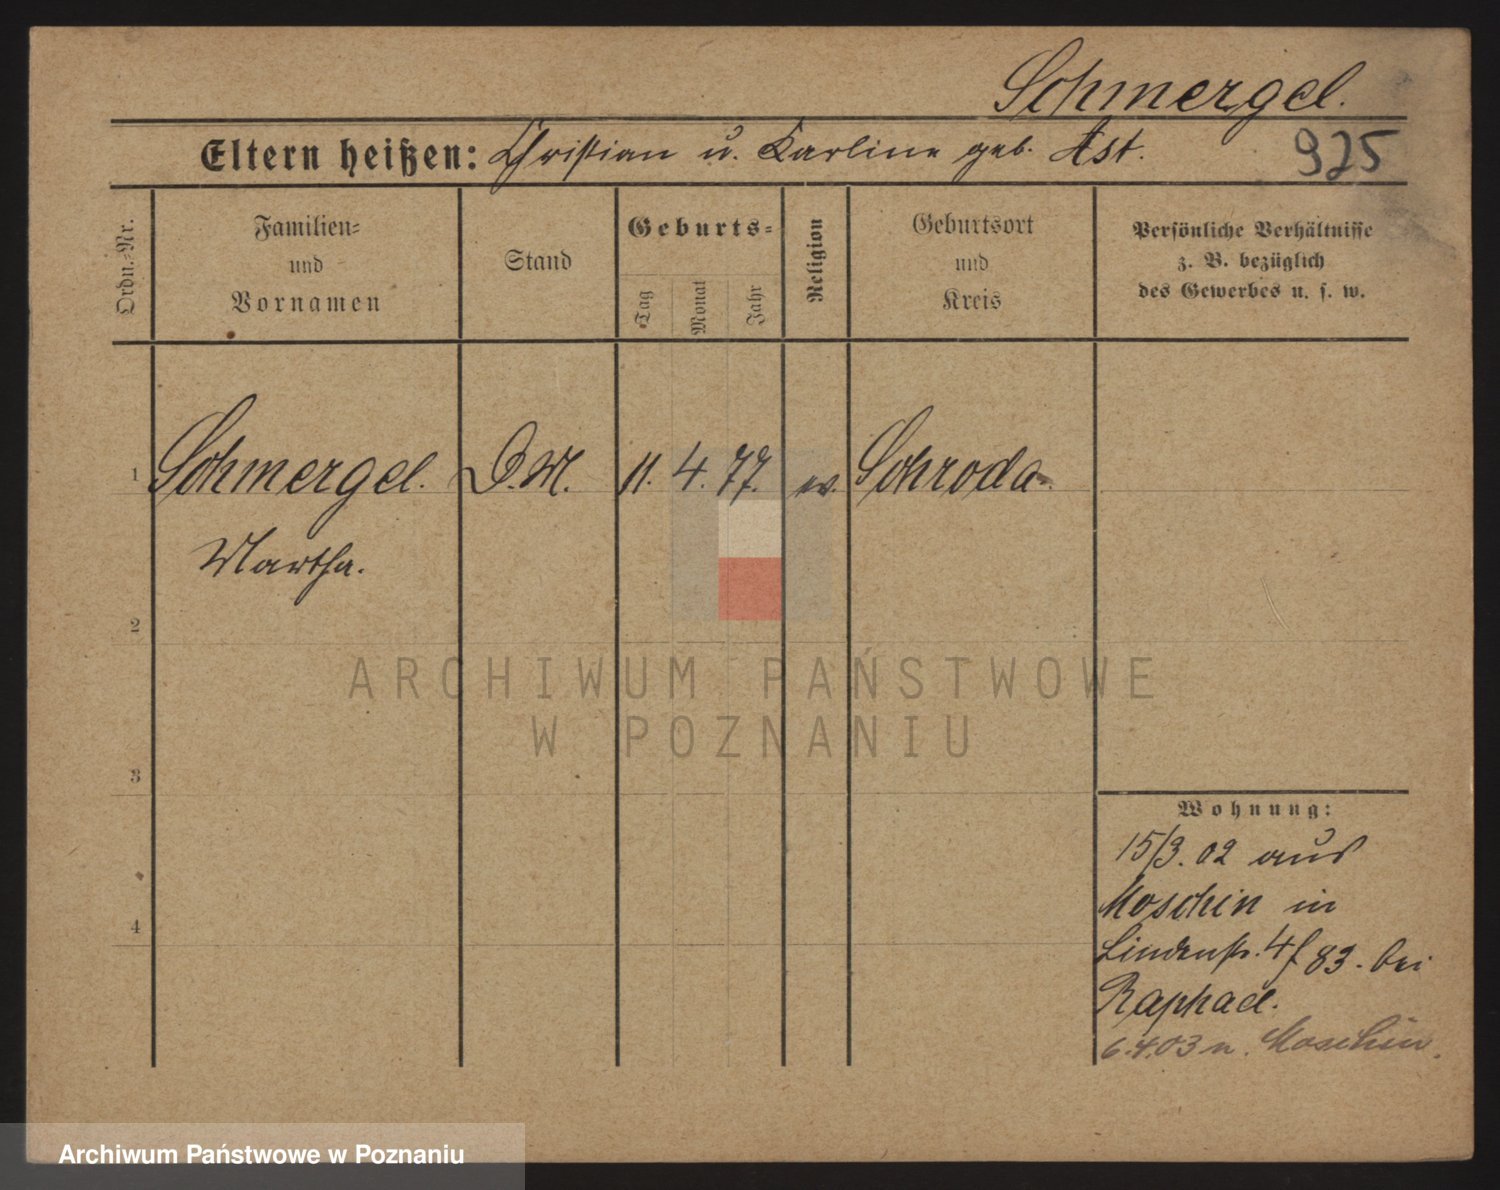 Schmergel.
Eltern heißen: Christian u. Karline geb. Ast.
925
Ordn.-Nr.
Familien-
und
Vornamen
Stand
Geburts-
Tag
Monat
Jahr
Religion
Geburtsort
und
Kreis
Persönliche Verhältnisse
z. B. bezüglich
des Gewerbes u. s. w.
1 Schmergel. D.M. 11. 4. 77. ev. Schroda
Martha.
2
ARCHIWUM PAŃSTWOWE
W POZNANIU
3
Wohnung:
15/3. 02 aus
Moschin in
4
Lindenstr. 4 83. bei
Raphael.
6.4.03 n. Moschin.
Archiwum Państwowe w Poznaniu